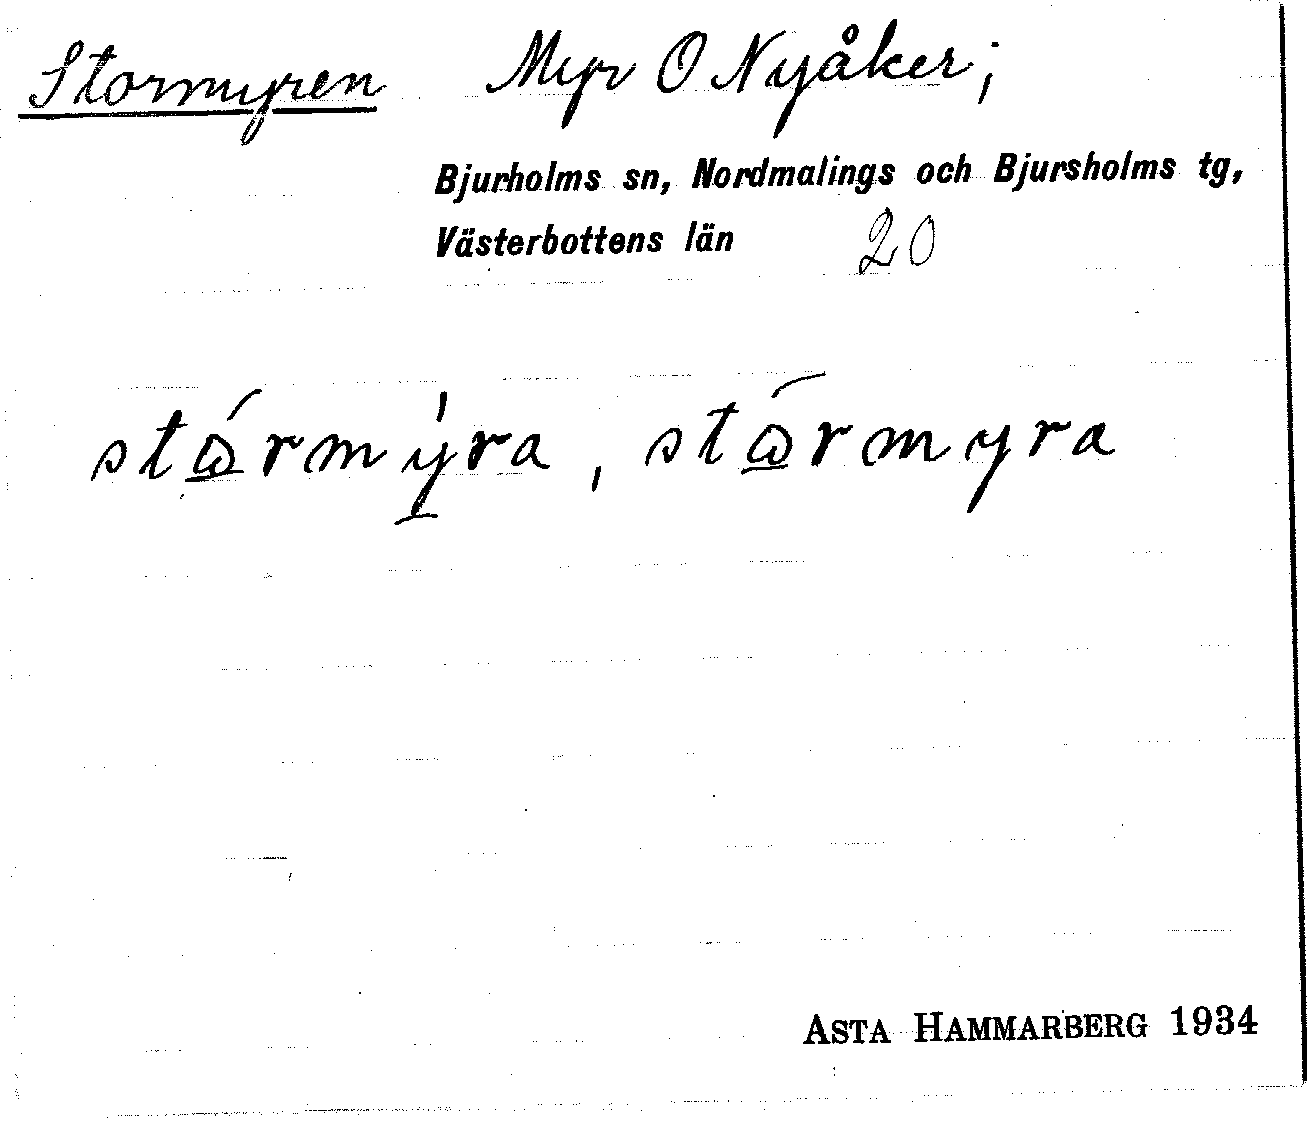 Stormyren Myr O Nyåker;
Bjurholms sn, Nordmalings och Bjursholms tg,
Västerbottens län 20
stώ̲rmy̲̍ra, stώ̲rmyra
ASTA HAMMARBERG 1934